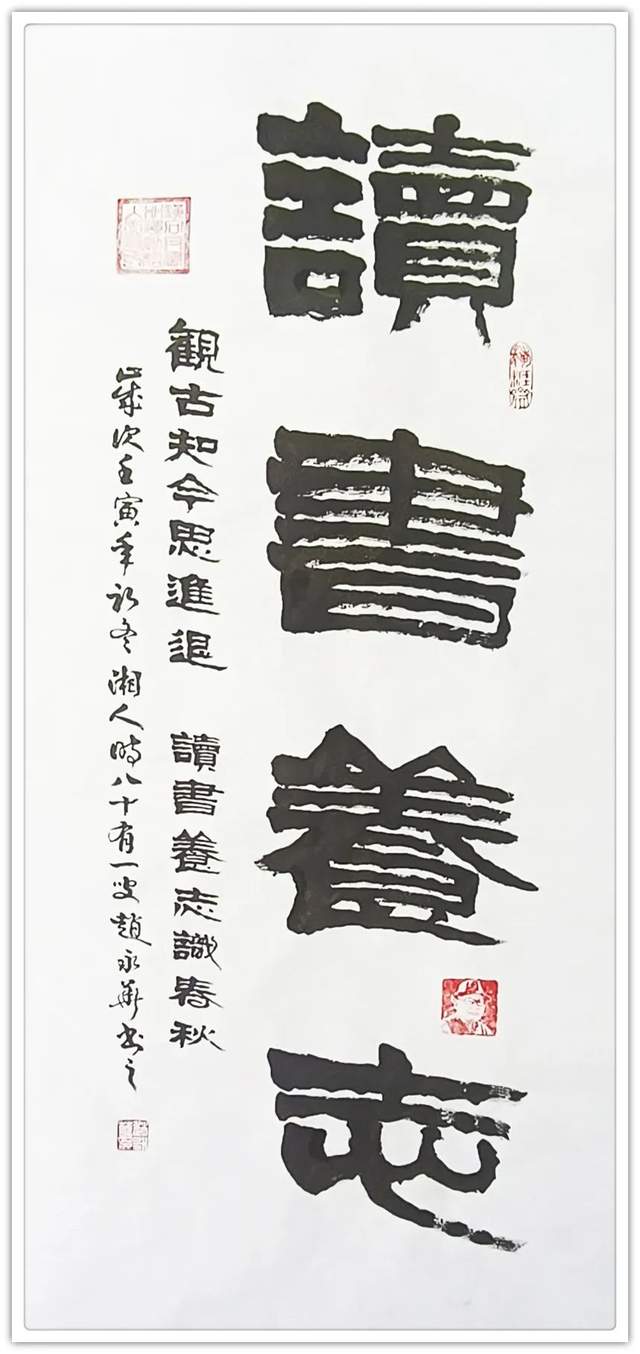 讀書養志
観古知今思進退 讀書養志識春秋
歲次壬寅年初冬湘人時八十有一叟趙永華書之